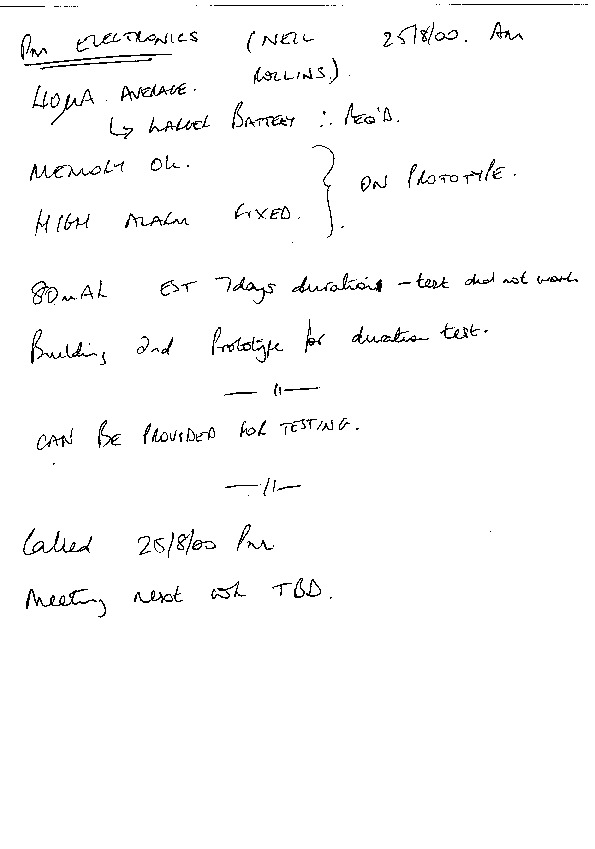 PM ELECTRONICS (NEIL 25/8/00. AM
ROLLINS.)
40µA AVERAGE.
↳ LARGER BATTERY ∴ REQ'D.
MEMORY OK.
ON PROTOTYPE.
HIGH ALARM FIXED.
80mAh EST 7days duration - test did not work
Building 2nd Prototype for duration test.
— // —
CAN BE PROVIDED FOR TESTING.
— // —
Called 25/8/00 PM
Meeting next wk TBD.